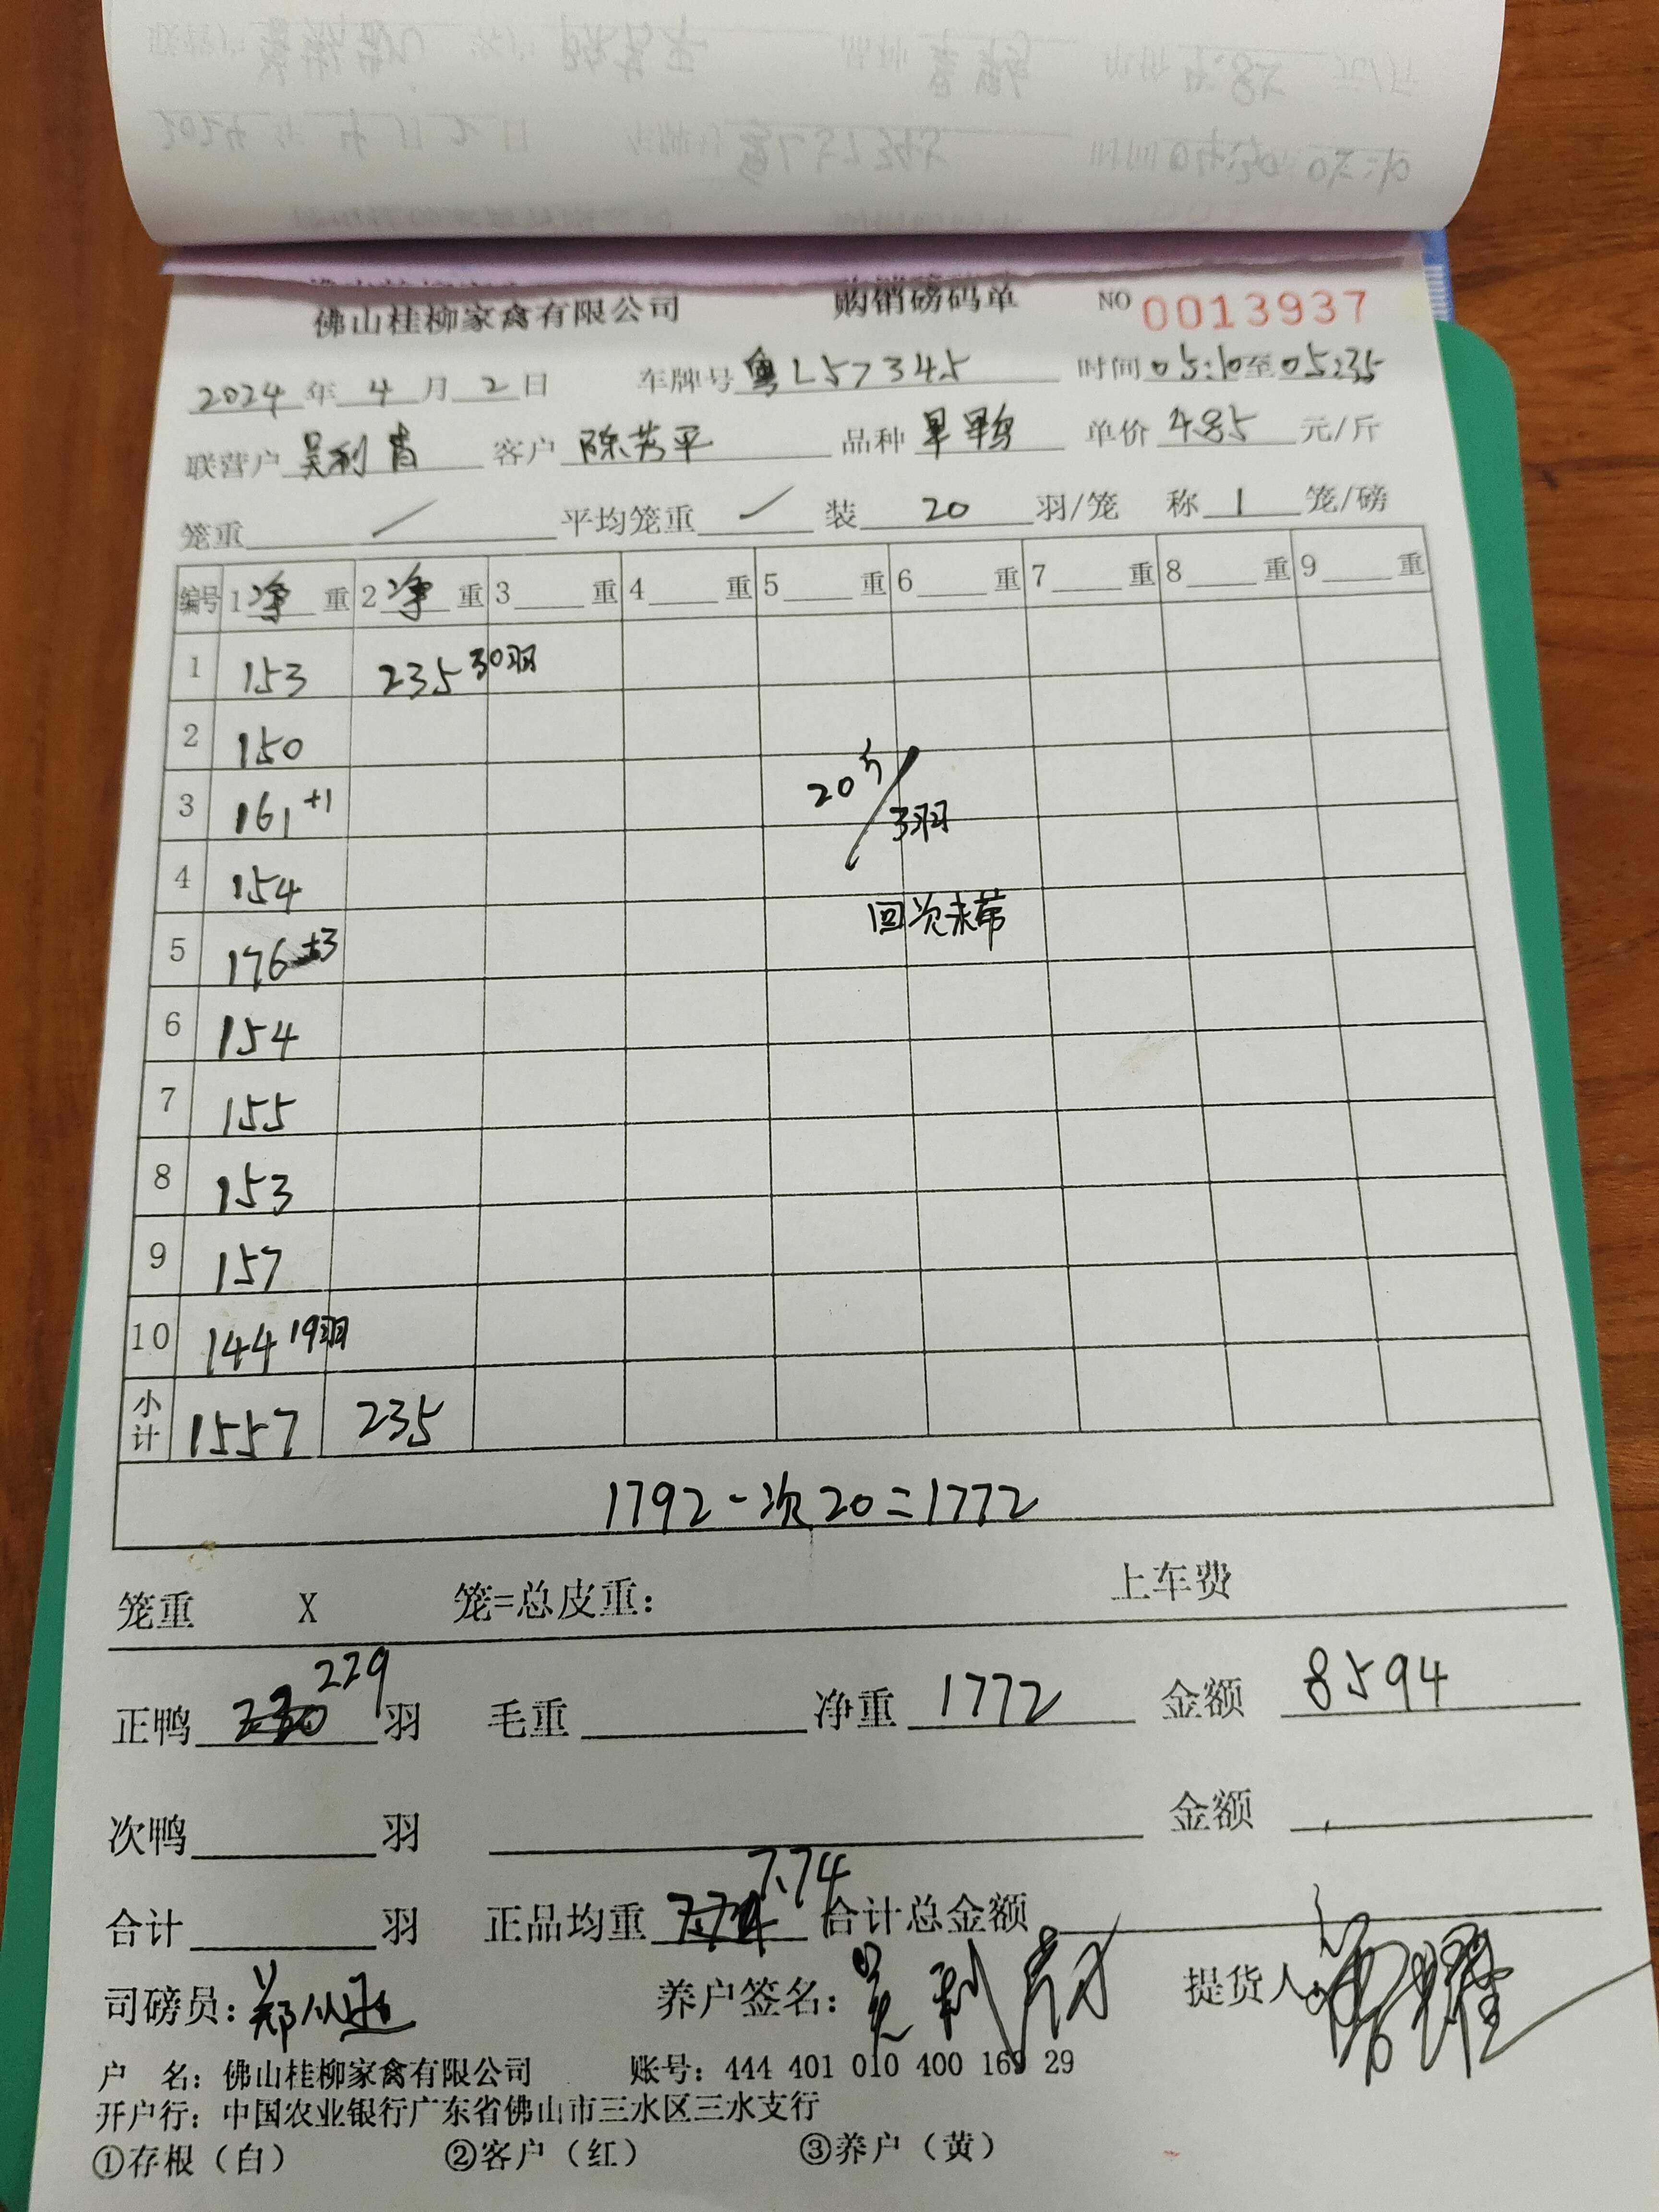 佛山桂柳家禽有限公司 购销磅码单 NO 0013937
2024 年 4 月 2 日 车牌号 粤L57345 时间 05:10 至 05:35
联营户 吴利青 客户 陈芳平 品种 旱鸭 单价 4.85 元/斤
笼重 / 平均笼重 / 装 20 羽/笼 称 1 笼/磅
编号 1 净 重 2 净 重 3 重 4 重 5 重 6 重 7 重 8 重 9 重
1 153 235 30羽
2 150
20斤/3羽
3 161 +1
4 154
回次未带
5 176 +3
6 154
7 155
8 153
9 157
10 144 19羽
小计 1557 235
1792-次20=1772
笼重 X 笼=总皮重: 上车费
正鸭 230 229 羽 毛重 净重 1772 金额 8594
次鸭 羽 金额
合计 羽 正品均重 7.74 合计总金额
司磅员: 养户签名: 提货人:
户 名: 佛山桂柳家禽有限公司 账号: 444 401 010 400 169 29
开户行: 中国农业银行广东省佛山市三水区三水支行
①存根（白） ②客户（红） ③养户（黄）